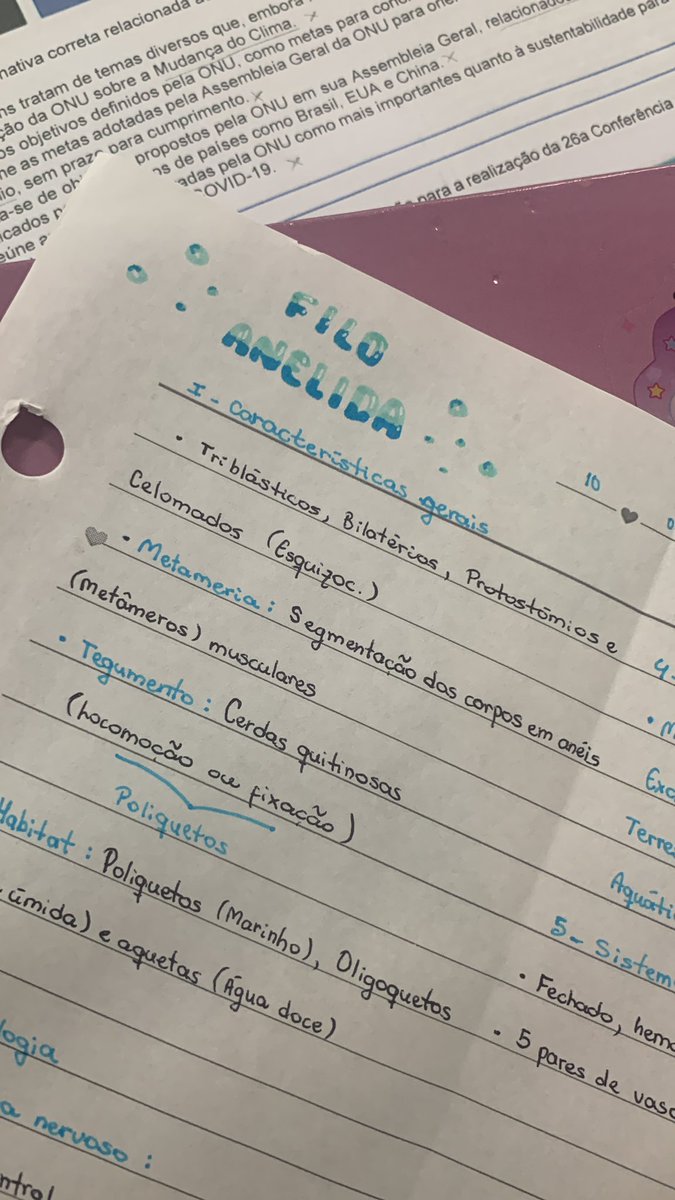 nativa correta relacionada a
ns tratam de temas diversos que, embora
ção da ONU sobre a Mudança do Clima.
os objetivos definidos pela ONU, como metas para
ne as metas adotadas pela Assembleia Geral da ONU para
io, sem prazo para cumprimento.
a-se de propostos pela ONU em sua Assembleia Geral, relacionado
cados de países como Brasil, EUA e China.
eúne adas pela ONU como mais importantes quanto à sustentabilidade para
COVID-19.
para a realização da 26a Conferência
FILO
ANELIDA
I - Características gerais
• Triblásticos, Bilatérios, Protostômios e
Celomados (Esquizoc.)
• Metameria: Segmentação dos corpos em anéis
(metâmeros) musculares
• Tegumento: Cerdas quitinosas
(Locomoção ou fixação)
Poliquetos
Habitat: Poliquetos (Marinho), Oligoquetos
úmida) e aquetas (Água doce)
logia
a nervoso:
ntral
10
4-
• M
Exc
Terre
Aquáti
5- Sistem
• Fechado, hemo
• 5 pares de vaso